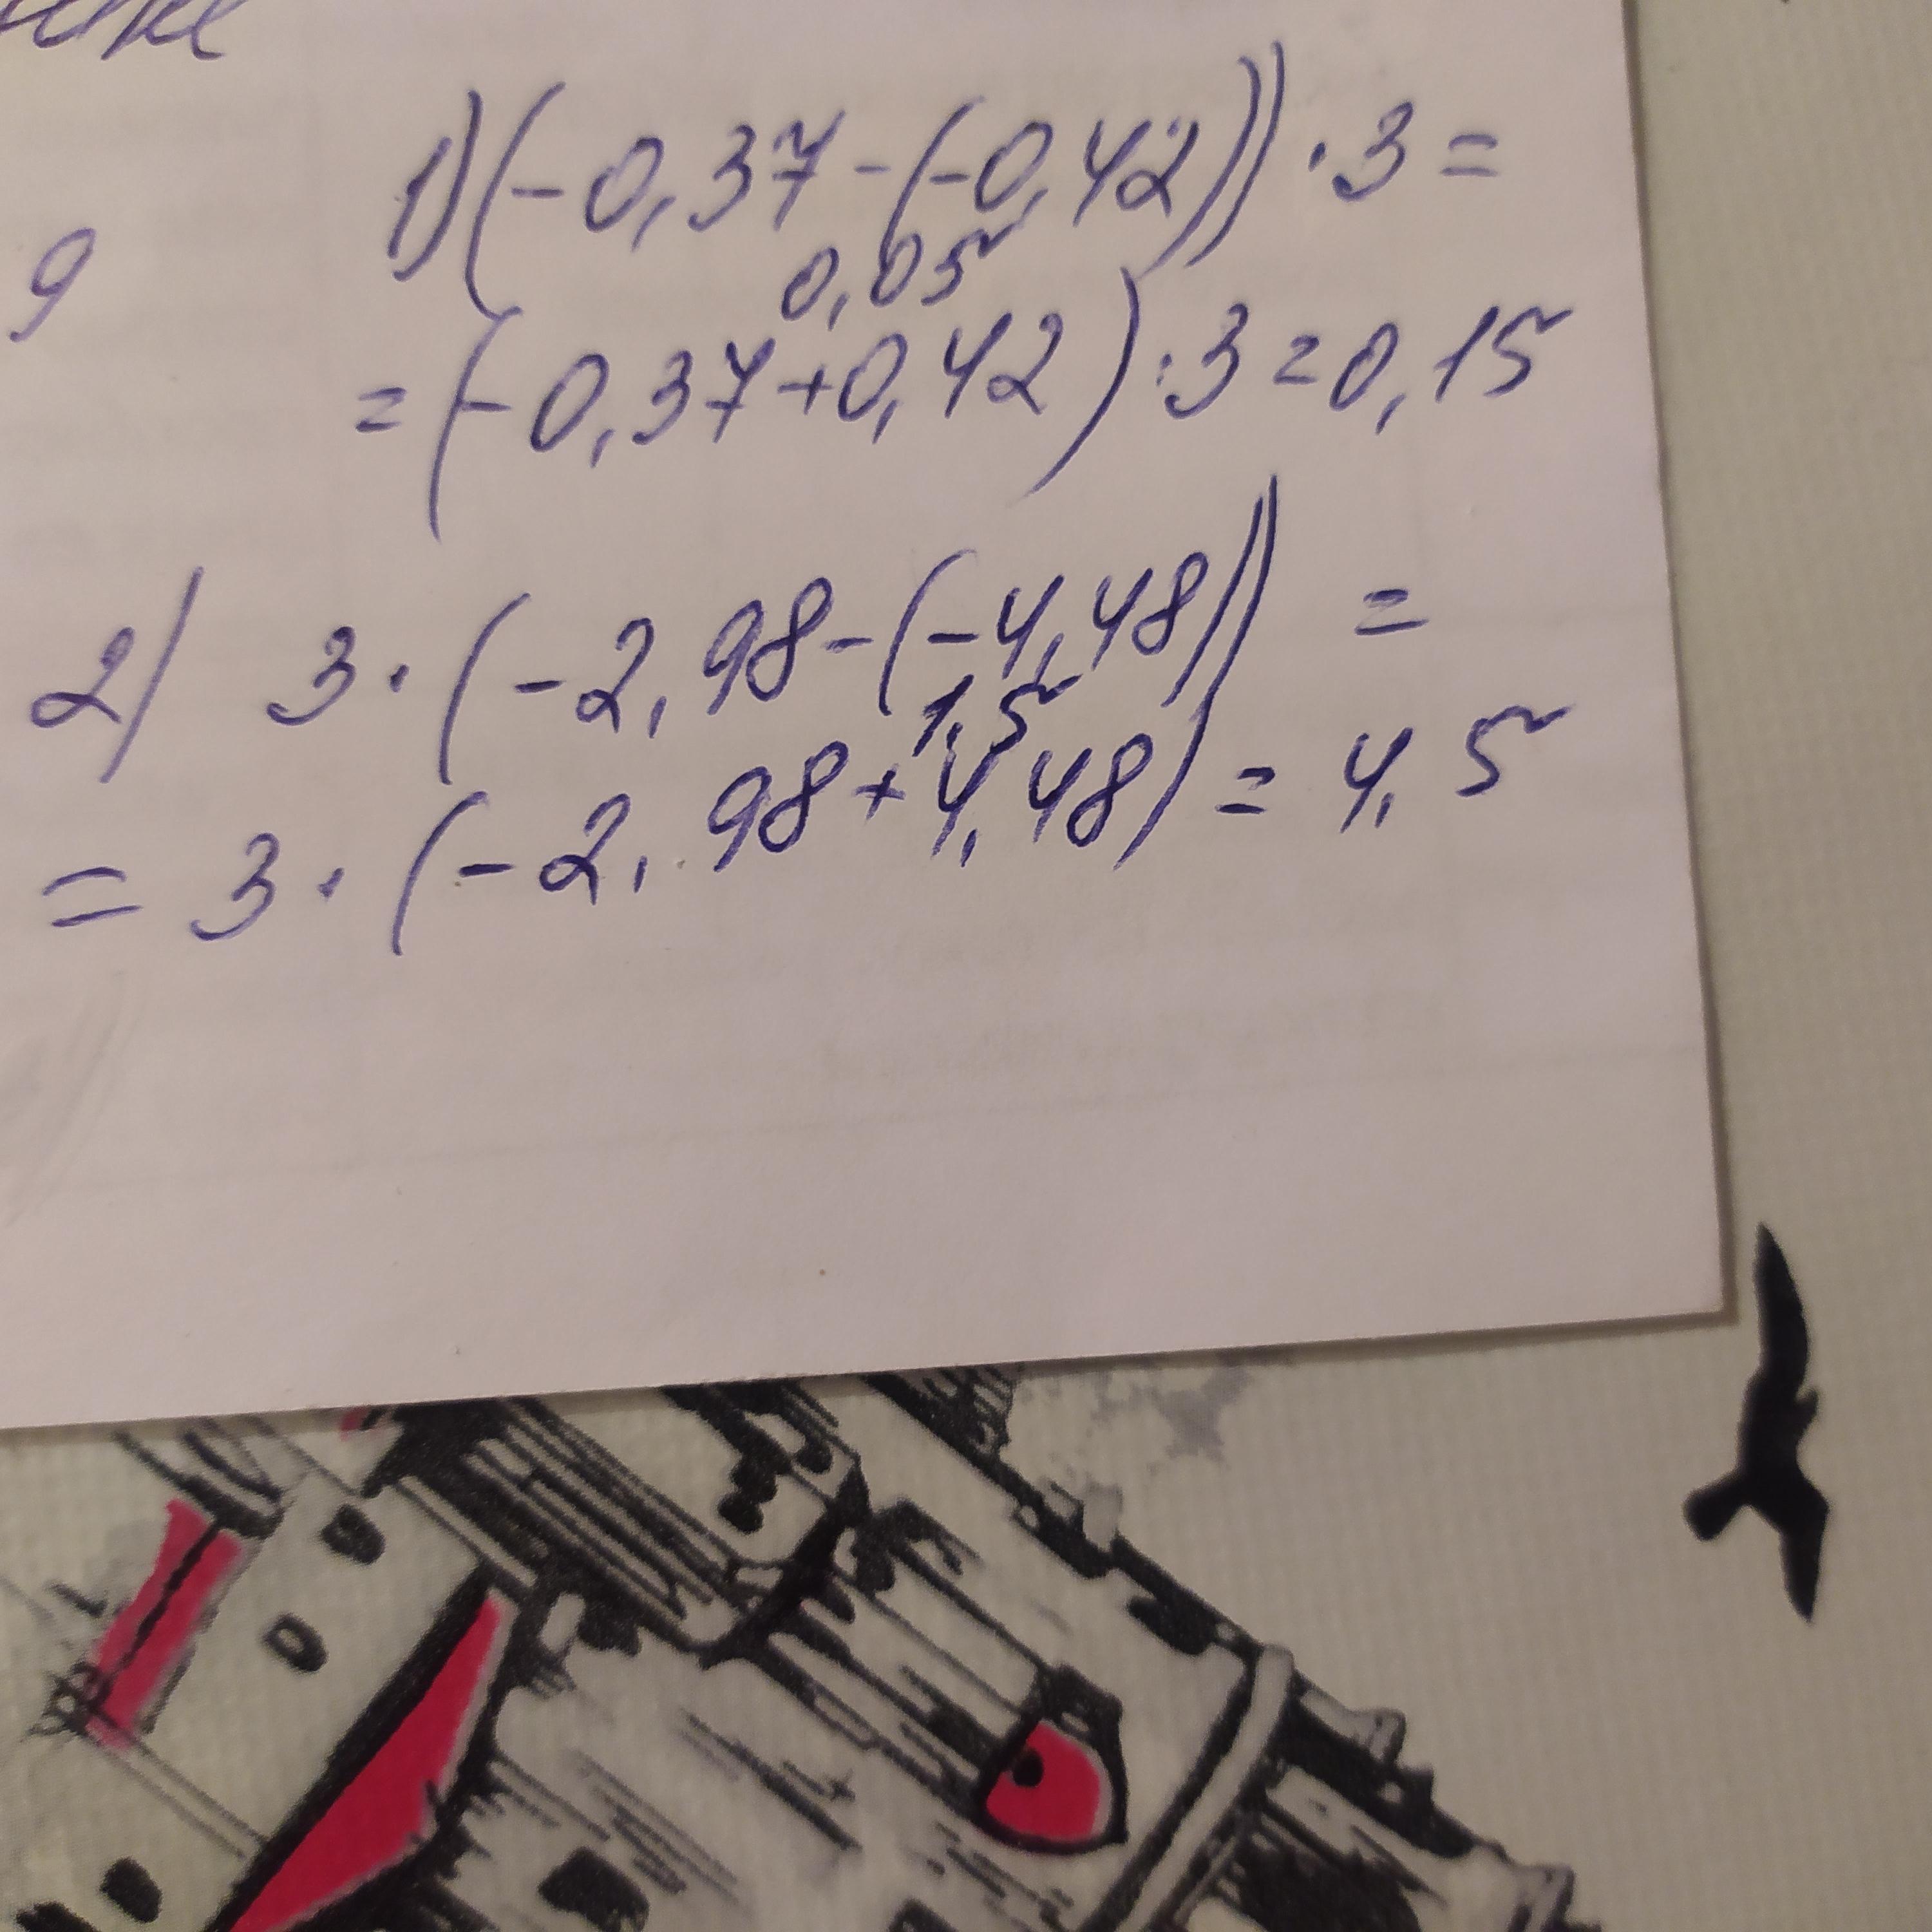 9
1) (-0,37-(-0,42))·3=
0,05
=(-0,37+0,42)·3=0,15
2) 3·(-2,98-(-4,48))=
1,5
=3·(-2,98+4,48)=4,5